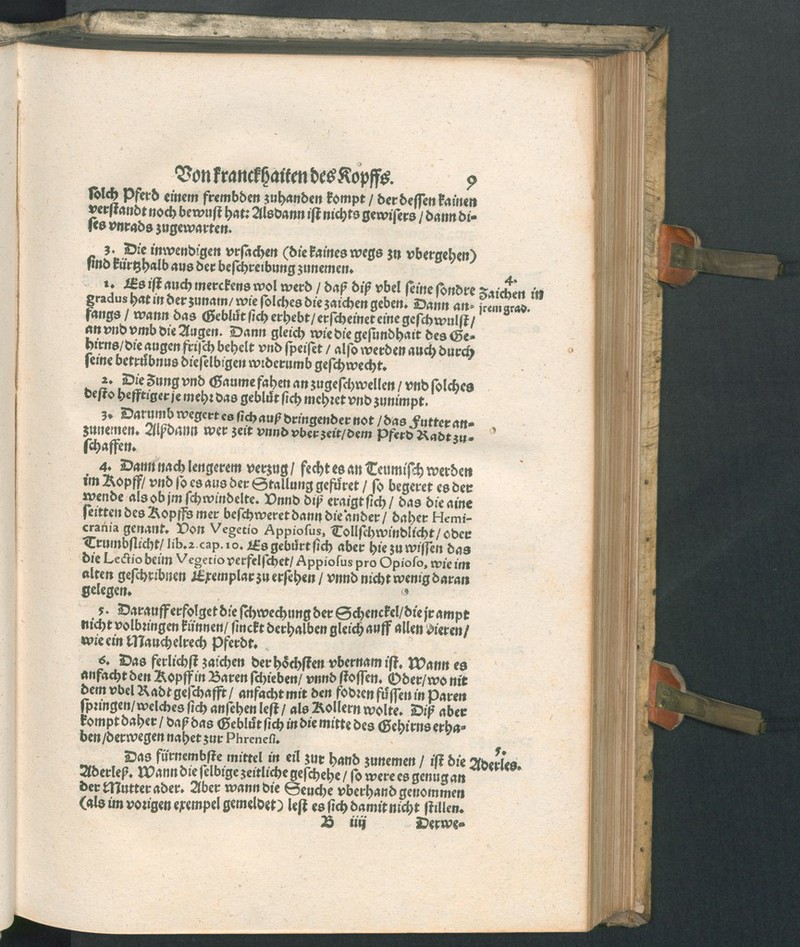 Von kranckhaiten des Kopffs. 9
solch Pferd einem frembden zuhanden kompt / der dessen kainen
verstandt noch bewust hat: Alsdann ist nichts gewisers / dann di-
ses vnrads zugewarten.
3. Die inwendigen vrsachen (die kaines wegs zu vbergehen)
sind kürtzhalb aus der beschreibung zunemen.
1. Es ist auch merckens wol werd / daß diß vbel seine sondre
gradus hat in der zunam / wie solches die zaichen geben. Dann an-
fangs / wann das Geblüt sich erhebt / erscheinet eine geschwulst /
an vnd vmb die Augen. Dann gleich wie die gesundhait des Ge-
hirns / die augen frisch behelt vnd speiset / also werden auch durch
seine betrübnus dieselbigen widerumb geschwecht.
4.
Zaichen in
jrem grad.
2. Die Zung vnd Gaume fahen an zugeschwellen / vnd solches
desto hefftiger je mehr das geblüt sich mehret vnd zunimpt.
3. Darumb wegert es sich auß dringender not / das Futter an-
zunemen. Alßdann wer zeit vnnd vber zeit / dem Pferd Radt zu-
schaffen.
4. Dann nach lengerem verzug / fecht es an Teumisch werden
im Kopff / vnd so es aus der Stallung gefüret / so begeret es der
wende als ob jm schwindelte. Vnnd diß eraigt sich / das die aine
seitten des Kopffs mer beschweret dann die ander / daher Hemi-
crania genant. Von Vegetio Appiosus, Tollschwindlicht / oder
Trumbslicht / lib. 2. cap. 10. Es gebürt sich aber hie zu wissen das
die Lectio beim Vegetio verfelschet / Appiosus pro Opioso, wie im
alten geschribnen Exemplar zu ersehen / vnnd nicht wenig daran
gelegen.
5. Darauff erfolget die schwechung der Schenckel / die jr ampt
nicht volbringen künnen / sinckt derhalben gleich auff allen vieren /
wie ein Mauchelrech Pferdt.
6. Das ferlichst zaichen der höchsten vbernam ist. Wann es
anfacht den Kopff in Baren schieben / vnnd stossen. Oder / wo nit
dem vbel Radt geschafft / anfacht mit den fodren füssen in Paren
springen / welches sich ansehen lest / als Kollern wolte. Diß aber
kompt daher / daß das Geblüt sich in die mitte des Gehirns erha-
ben / derwegen nahet zur Phrenesi.
Das fürnembste mittel in eil zur hand zunemen / ist die
Aderleß. Wann die selbige zeitliche geschehe / so were es genug an
der Mutter ader. Aber wann die Seuche vberhand genommen
(als im vorigen exempel gemeldet) lest es sich damit nicht stillen.
5.
Aderles.
B iiij Derwe-